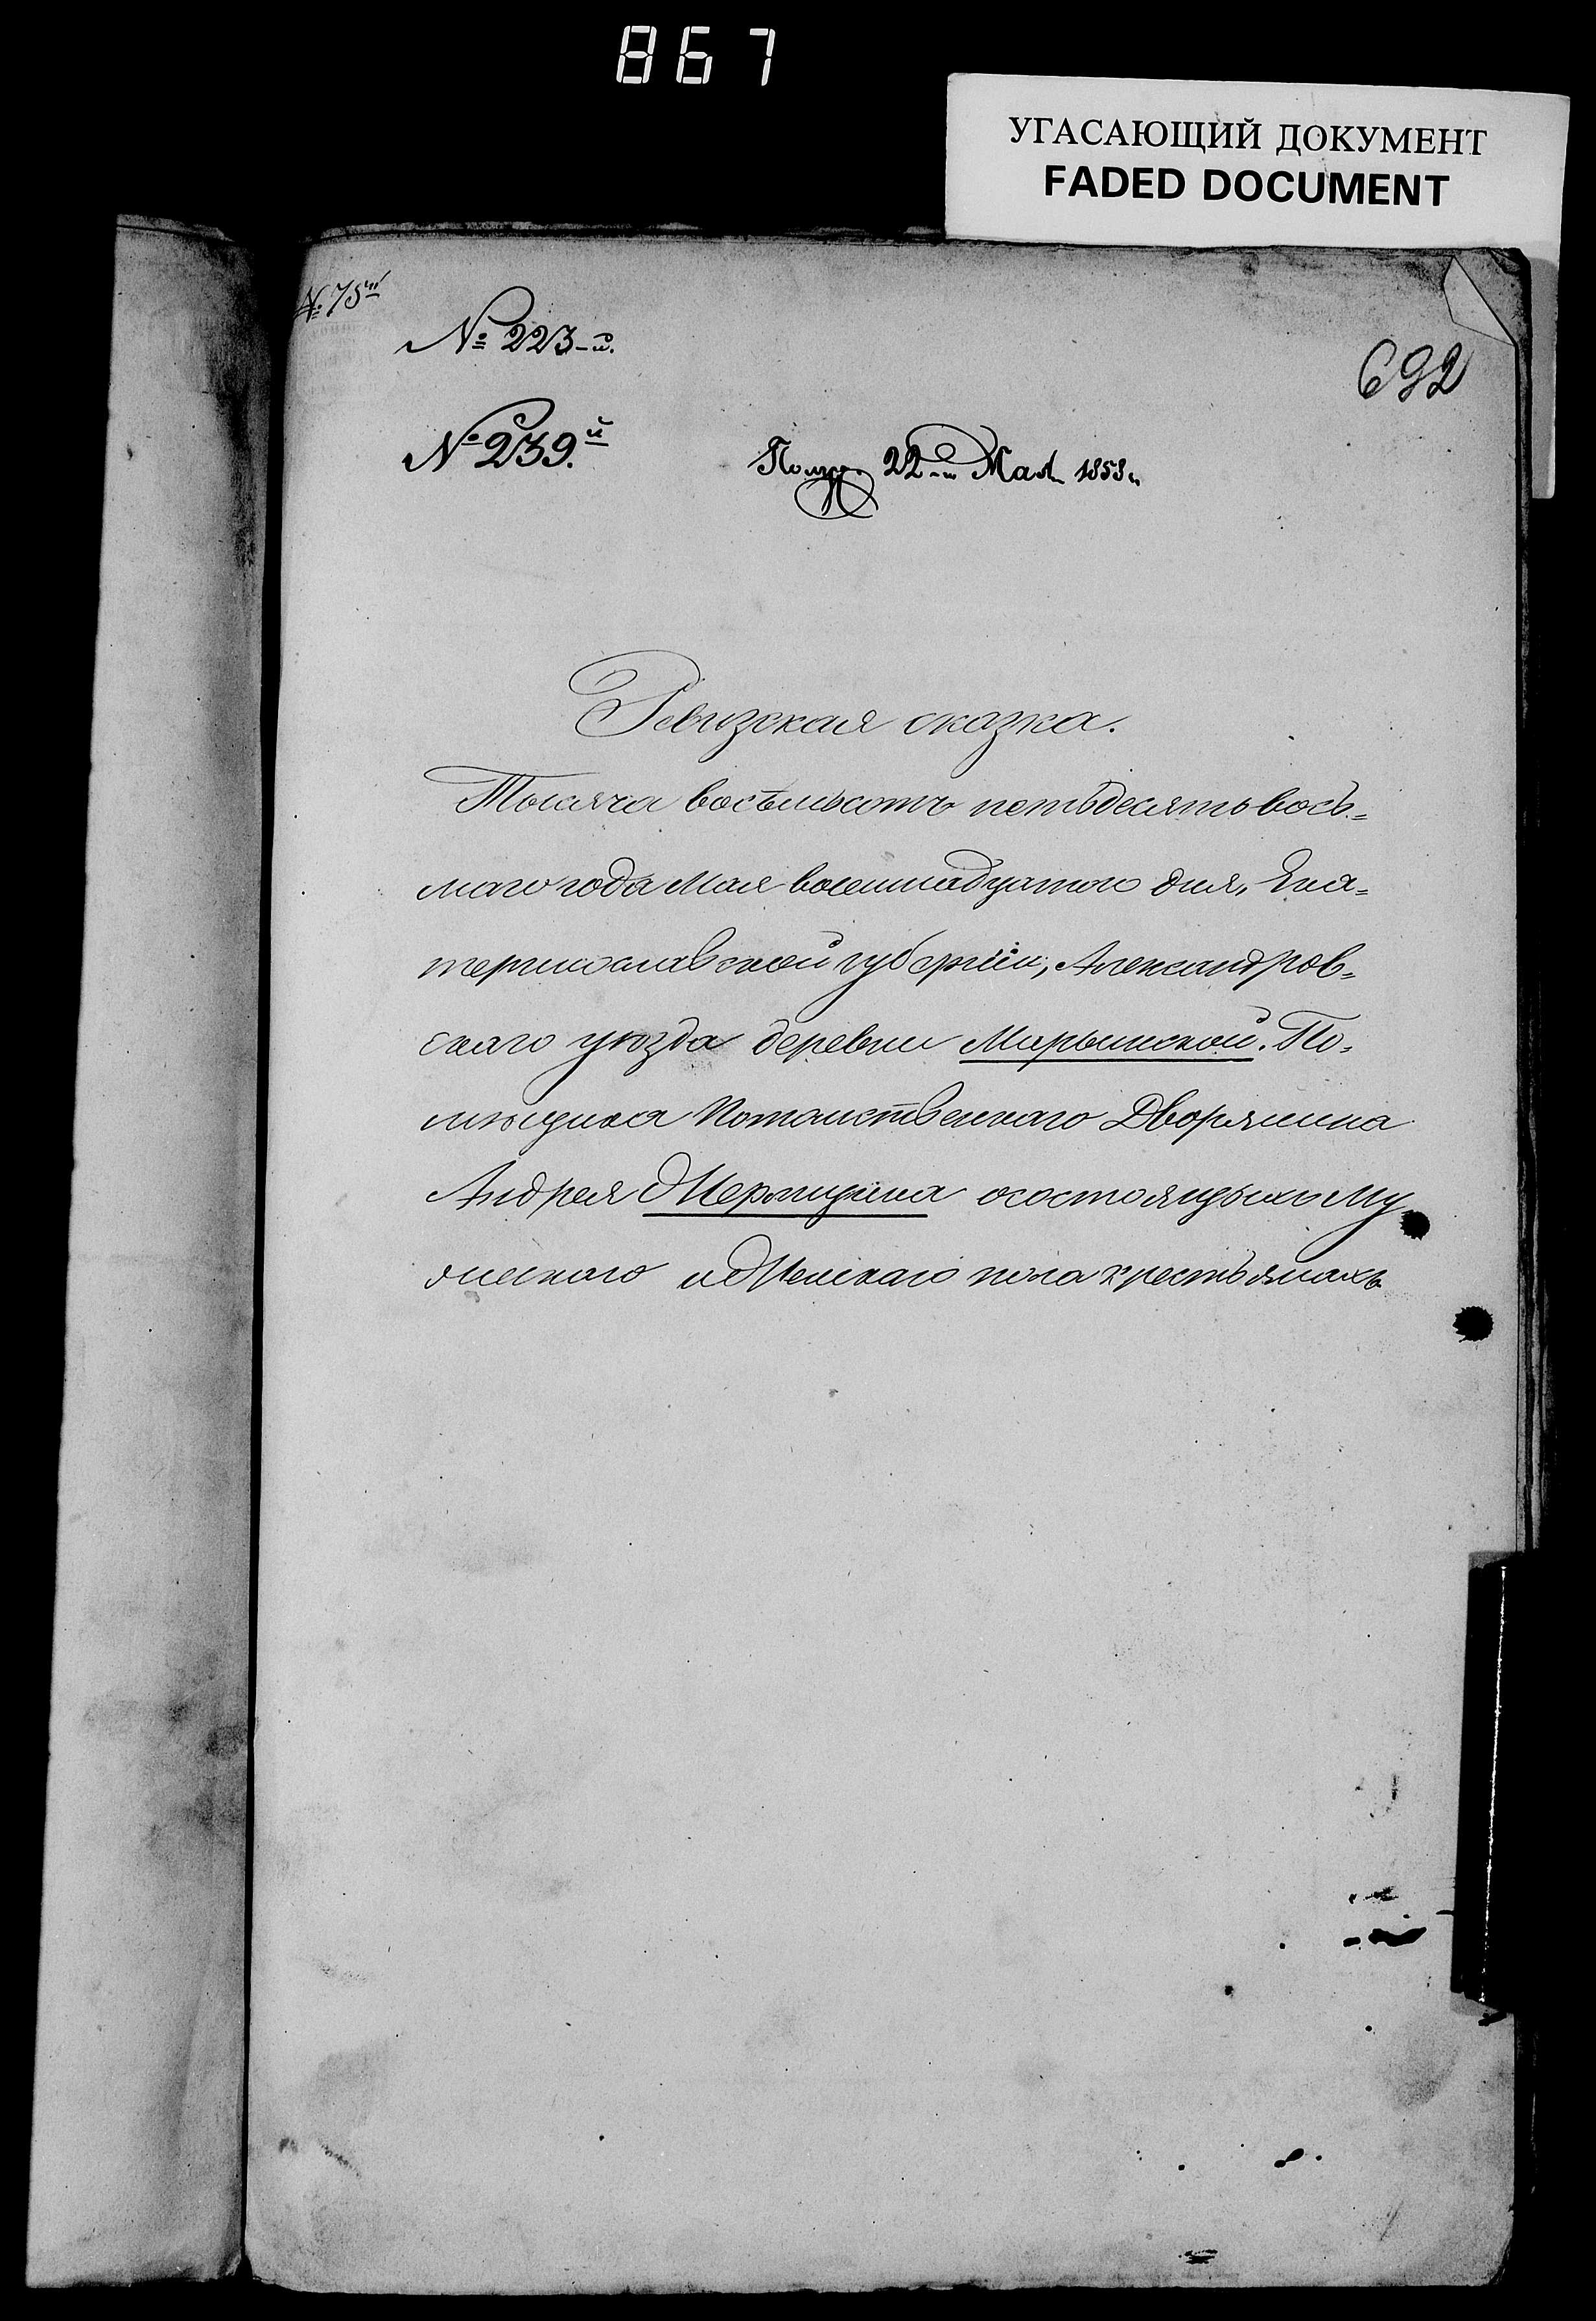 867
УГАСАЮЩИЙ ДОКУМЕНТ
FADED DOCUMENT
№ 75й
№ 223-й.
692
№ 239.й
Получ. 22-го Мая 1858 г.
Ревизская сказка.
Тысяча восемьсотъ петьдесятъ вось=
маго года Мая восемнадцатого дня, Ека=
теринославской губерніи, Александров=
скаго уѣзда деревни Марьинской. По=
мѣщика Потомственнаго Дворянина
Андрея осостоящихъ Му
жескаго и Женскаго пола крестьянахъ